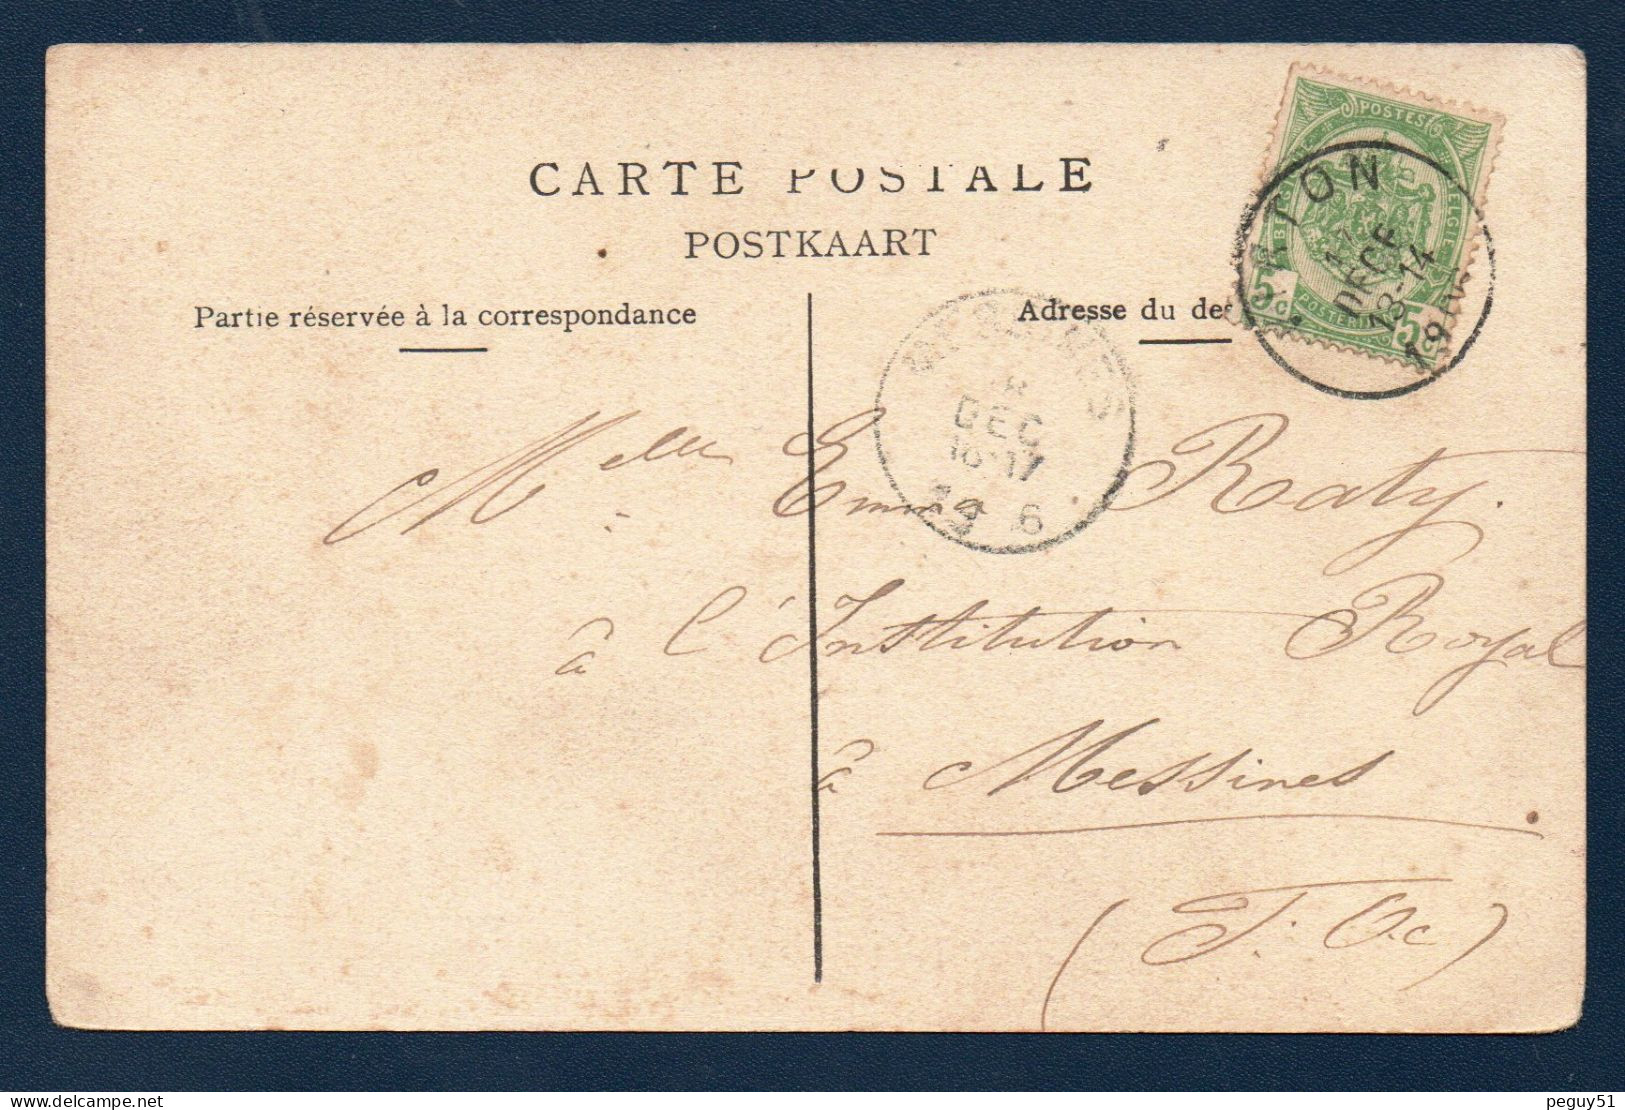 CARTE POSTALE
POSTKAART
Partie réservée à la correspondance
Adresse du des
POSTES
BELGIE
5 c
5 c
POSTERIJEN
TON
DECE
13-14
19
8
DEC
16-17
19 6
Melle Emma Raty.
à l'Institution Royal
à Messines
(F. Occ)
peguy51